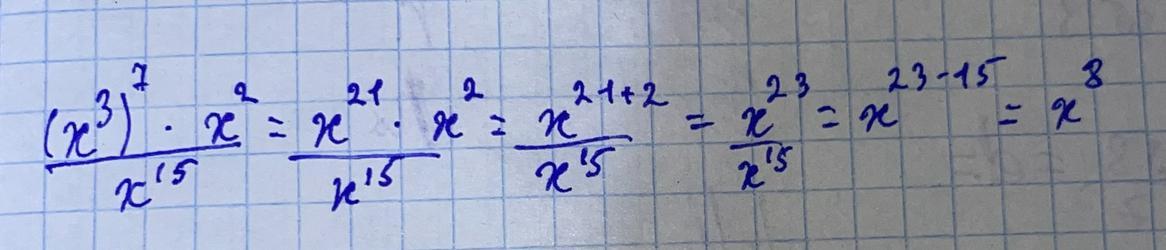 \frac{(x^3)^7 \cdot x^2}{x^{15}} = \frac{x^{21} \cdot x^2}{x^{15}} = \frac{x^{21+2}}{x^{15}} = \frac{x^{23}}{x^{15}} = x^{23-15} = x^8